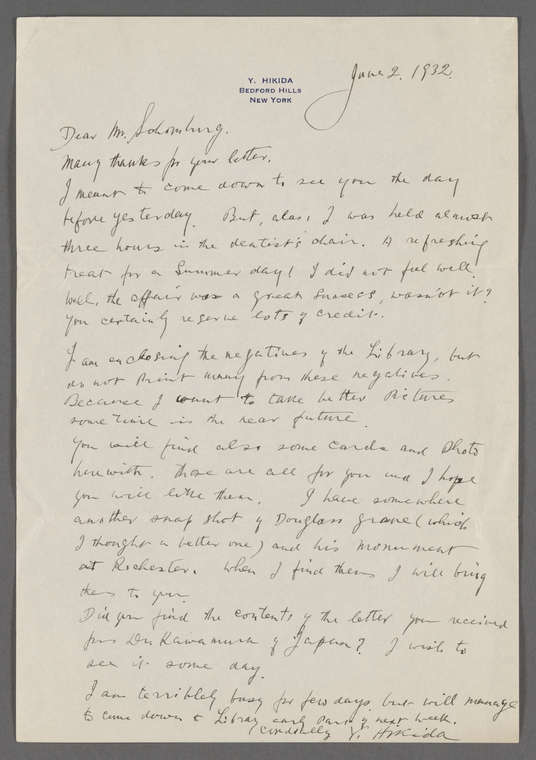 Y. HIKIDA
BEDFORD HILLS
NEW YORK
June 2. 1932.
Dear Mr. Schomburg.
Many thanks for your letter.
I meant to come down to see you the day
before yesterday. But, alas, I was held almost
three hours in the dentist's chair. A refreshing
treat for a Summer day! I did not feel well.
Well, the affair was a great success, wasn't it?
You certainly reserve lots of credit.
I am enclosing the negatives of the Library, but
do not print many from these negatives.
Because I want to take better pictures
some time in the near future.
You will find also some cards and photo
herewith. Those are all for you and I hope
you will like them. I have somewhere
another snap shot of Douglass grave (which
I thought a better one) and his monument
at Rochester. When I find them I will bring
them to you.
Did you find the contents of the letter you received
from Dr. Kawamura of Japan? I wish to
see it some day.
I am terribly busy for few days, but will manage
to come down to Library early part of next week.
Cordially Y. Hikida